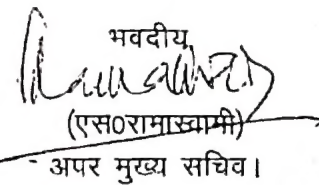 भवदीय,
(एस0रामास्वामी)
अपर मुख्य सचिव।